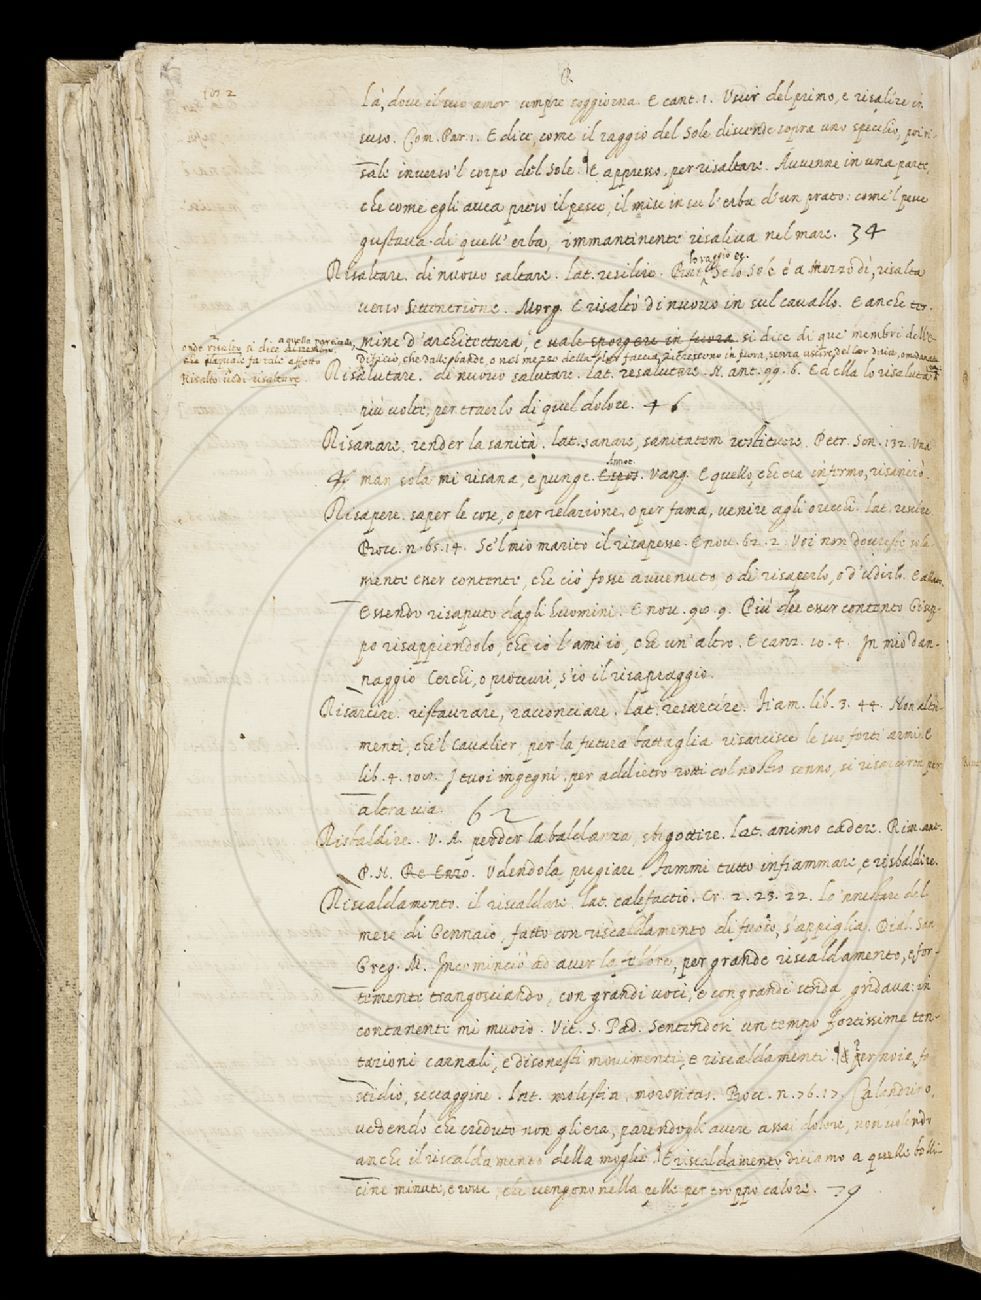 R
1012
Là, doue il suo amor sempre soggiorna. E cant. 1. Uscir del primo, e risalire in
suso. Com. Par. 1. E dice, come il raggio del Sole discende sopra uno specchio, poi ri-
sale inuerso 'l corpo del Sole. E appresso, per risaltare. Auuenne in una parte,
che come egli auea preso il pesce, il mise in su l'erba d'un prato: come 'l pesce
gustaua di quell' erba, immantinente risaliua nel mare. 34
lo raggio es.
Risaltare. di nuouo saltare. lat. resilire. de lo Sole è a Mezzo dì, risalta
uerso Settentrione. Morg. E risaltò di nuouo in sul cauallo. E anche ter-
mine d'architettura, e uale sporgere in fuora si dice di que' membri dell'e-
difficio, che dalle bande, o nel mezzo della lor faccia, riescono in fuora, senza uscire del lor
a quella parte
onde risalto si dice
che fa tale effetto
Risalto uedi risaltare.
Risalutare. di nuouo salutare. lat. resalutare. N. ant. 99. 6. Ed ella lo risalutò
più uolte, per trarlo di quel dolore. 46
Risanare, render la sanità. lat. sanare, sanitatem restituere. Petr. Son. 132. Una
man sola mi risana, e punge. Espos. Vang. E quello, che era infermo, risanerò.
Annot.
Risapere. saper le cose, o per relazione, o per fama, uenire agli orecchi. lat. rescire.
Bocc. n. 65. 14. Se 'l mio marito il risapesse. E nou. 62. 2. Voi non doureste sola-
mente esser contente, che ciò fosse auuenuto, o di risaperlo, o d'udirlo. E
Essendo risaputo dagli huomini. E nou. 98. 9. Più dee esser contento Gisip-
po risappiendolo, che io l'ami io, che un' altro. E canz. 10. 4. In mio dan-
naggio Cerchi, o procuri, s'io il risapraggio.
Risarcire. restaurare, racconciare. lat. resarcire. Fiam. lib. 3. 44. Non altri-
menti, che 'l Caualier, per la futura battaglia risarcisce le sue forti armi. E
lib. 4. 108. I tuoi ingegni, per addietro rotti col nostro senno, si risarciron per
altra uia. 62
Risbaldire. V. A. prender baldanza, sbigottire. lat. animo cadere. Rim. ant.
P. N. Re Enzo. Udendola pregiare, Fammi tutto infiammare, e risbaldire.
Riscaldamento. il riscaldare. lat. calefactio. Cr. 2. 23. 22. Lo 'nnestare del
mese di Gennaio, fatto con riscaldamento di fuoco, s'appiglia. Dial. San
Greg. M. Incominciò ad auer la febbre, per grande riscaldamento, e for-
temente trangosciando, con grandi uoci, e con grandi strida gridaua: in
contanente mi muoio. Vit. S. Pad. Sentendosi un tempo fortissime ten-
tazioni carnali, e disonesti mouimenti, e riscaldamenti. Per noia, fa-
stidio, seccaggine. Lat. molestia, morositas. Bocc. n. 76. 17. Calandrino,
uedendo che creduto non gli era, parendogli auere assai dolore, non uolendo
anche il riscaldamento della moglie. E riscaldamento diciamo a quelle bolli-
cine minute, e rosse, che uengono nella pelle per troppo calore. 79